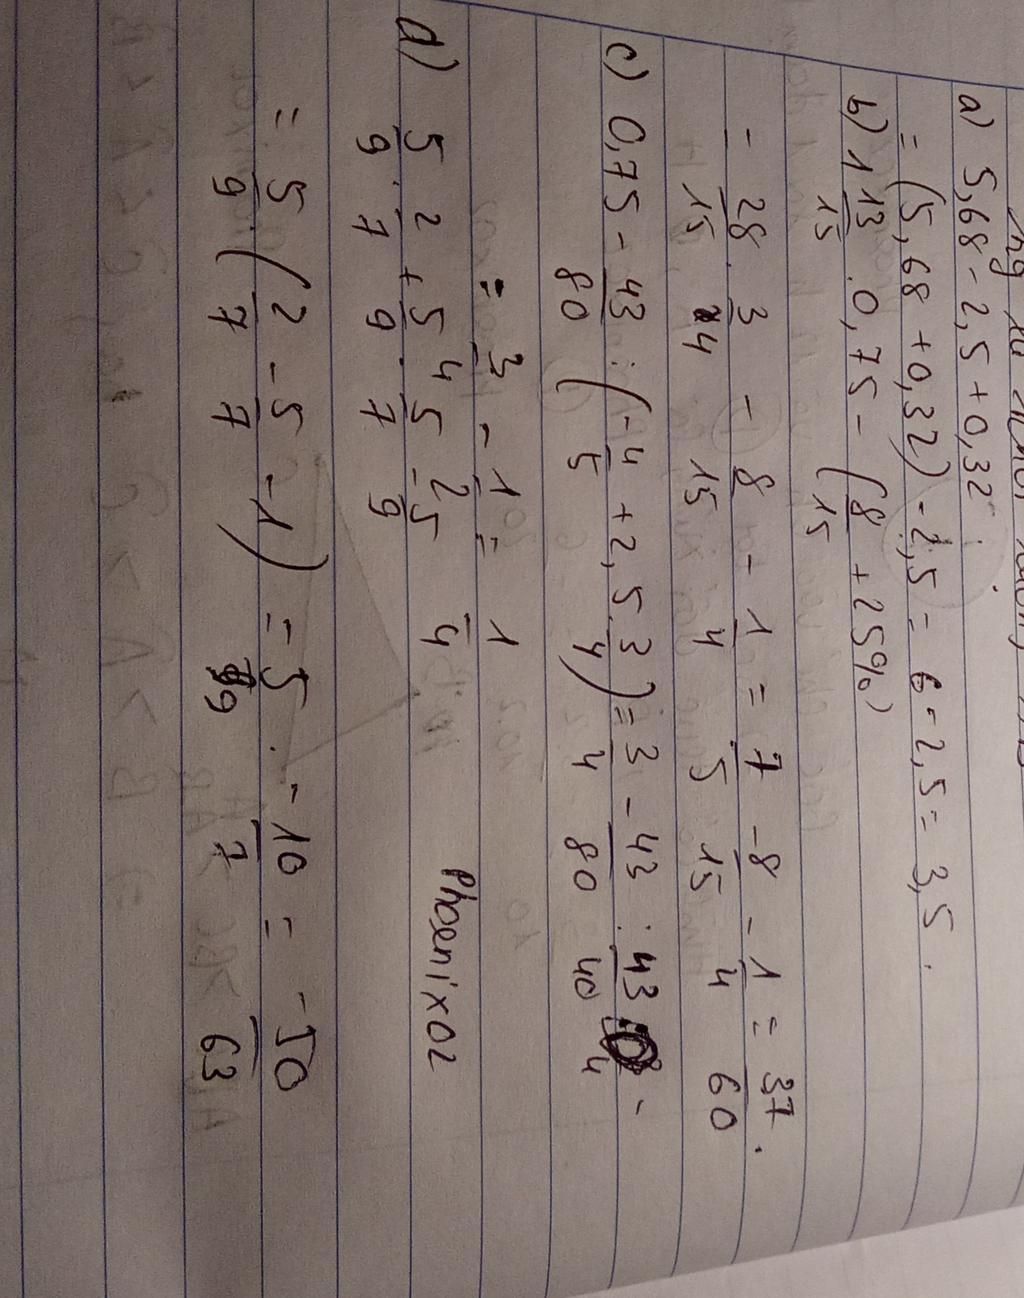 a) 5,68 - 2,5 + 0,32
= (5,68 + 0,32) - 2,5 = 6 - 2,5 = 3,5.
b) 1 13/15 . 0,75 - (8/15 + 25%)
- 28/15 . 3/4 - 8/15 - 1/4 = 7/5 - 8/15 - 1/4 = 37/60.
c) 0,75 - 43/80 : (-4/5 + 2,5 . 3/4) = 3/4 - 43/80 : 43/40 -
= 3/4 - 1/2 = 1/4
d) 5/9 . 2/7 + 5/9 . 5/7 - 5/9
Phoenix02
= 5/9 . (2/7 - 5/7 - 1) = 5/9 . -10/7 = -50/63